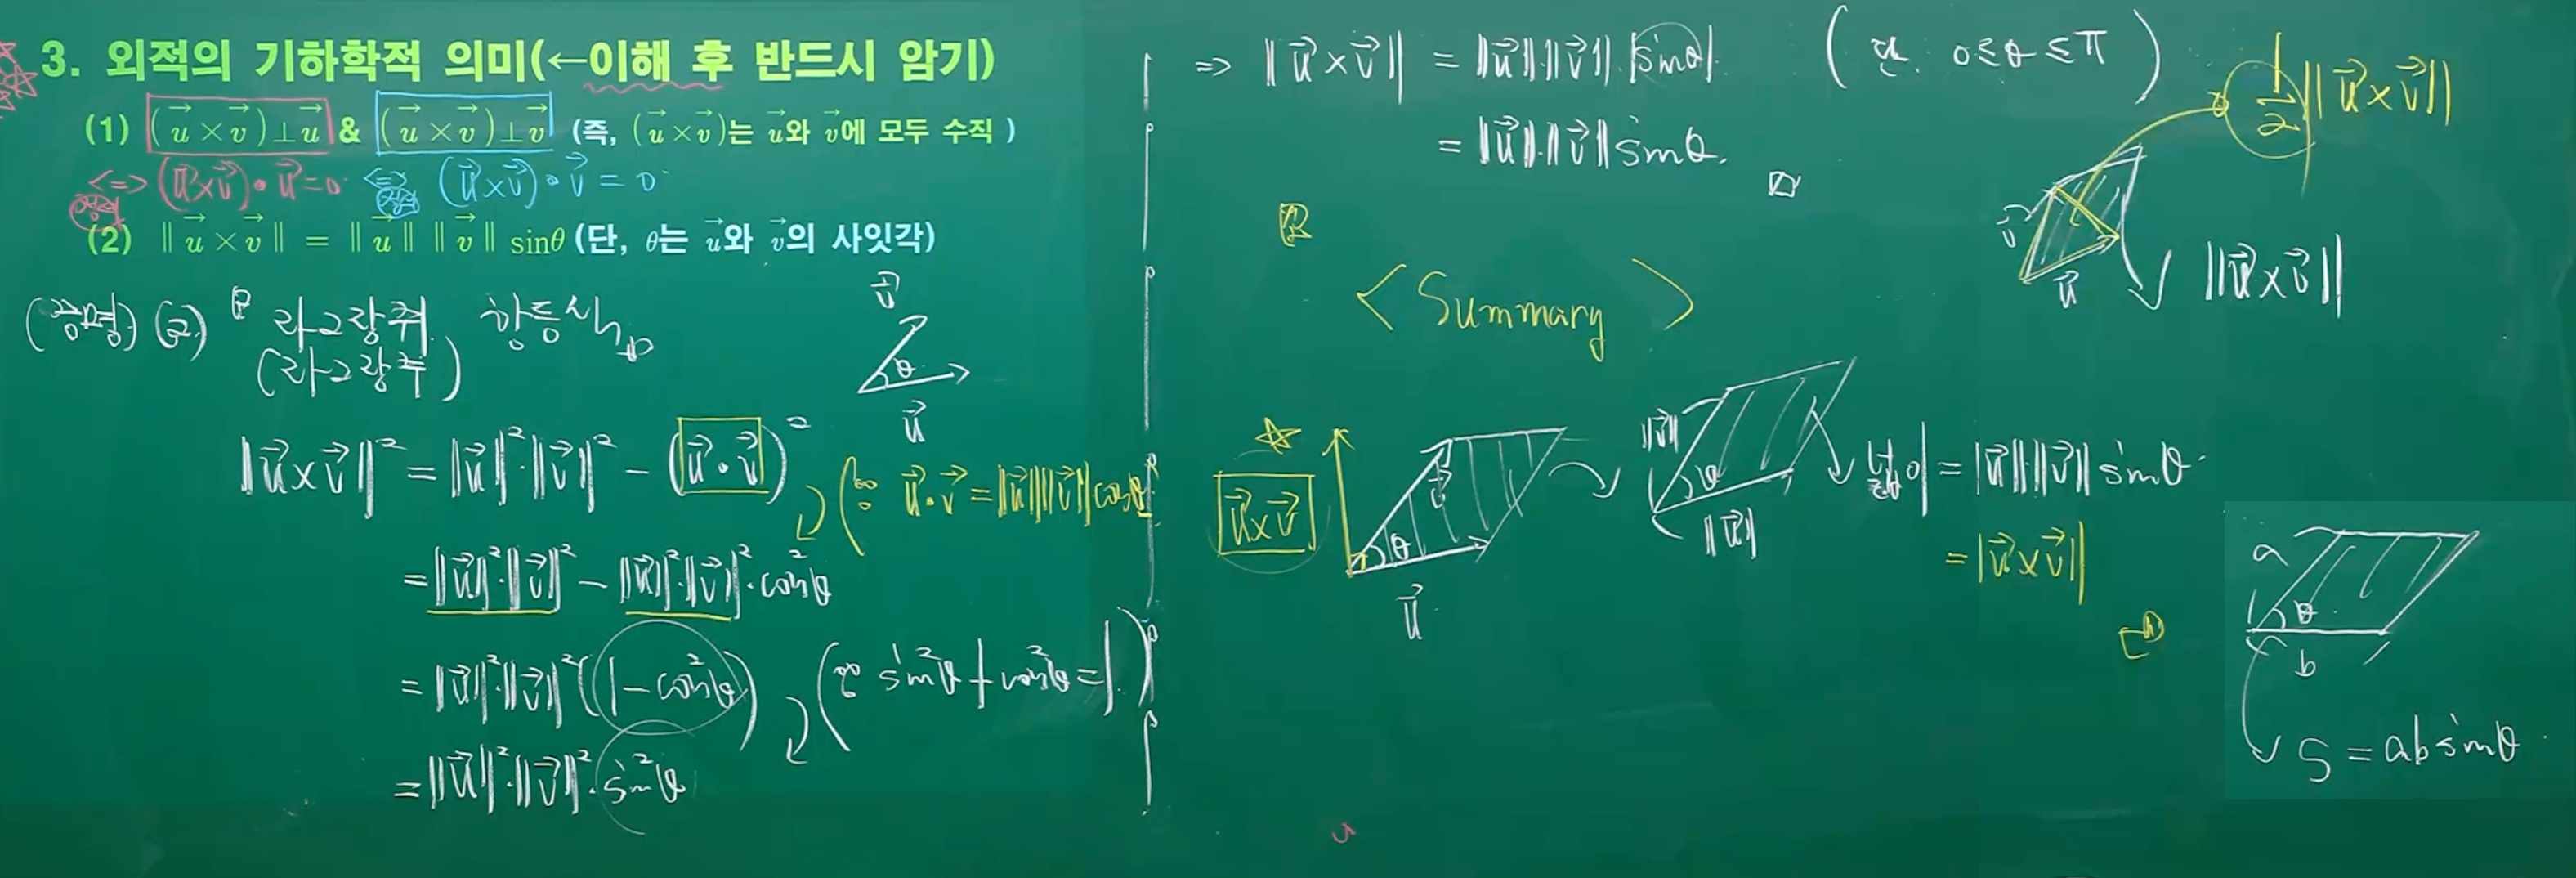 3. 외적의 기하학적 의미(←이해 후 반드시 암기)
(1) (u⃗ × v⃗)⊥u⃗ & (u⃗ × v⃗)⊥v⃗ (즉, (u⃗ × v⃗)는 u⃗와 v⃗에 모두 수직 )
<=> (u⃗×v⃗)•u⃗=0 <=> (u⃗×v⃗)•v⃗=0
(2) ∥u⃗ × v⃗∥ = ∥u⃗∥ ∥v⃗∥ sinθ (단, θ는 u⃗와 v⃗의 사잇각)
(증명) (2) 라그랑쥐 항등식
(라그랑주)
v⃗
θ
u⃗
∥u⃗×v⃗∥² = ∥u⃗∥²·∥v⃗∥² − (u⃗•v⃗)²
(∵ u⃗•v⃗ = ∥u⃗∥∥v⃗∥cosθ
= ∥u⃗∥²·∥v⃗∥² − ∥u⃗∥²·∥v⃗∥²·cos²θ
= ∥u⃗∥²·∥v⃗∥²(1−cos²θ)
(∵ sin²θ+cos²θ=1)
= ∥u⃗∥²·∥v⃗∥²·sin²θ
=> ∥u⃗×v⃗∥ = ∥u⃗∥·∥v⃗∥·|sinθ| 0≤θ≤π )
= ∥u⃗∥·∥v⃗∥sinθ.
1/2 ∥u⃗×v⃗∥
v⃗
u⃗
∥u⃗×v⃗∥
<Summary>
u⃗×v⃗
v⃗
θ
u⃗
∥v⃗∥
θ
∥u⃗∥
넓이 = ∥u⃗∥·∥v⃗∥ sinθ
= ∥u⃗×v⃗∥
a
θ
b
S = ab sinθ